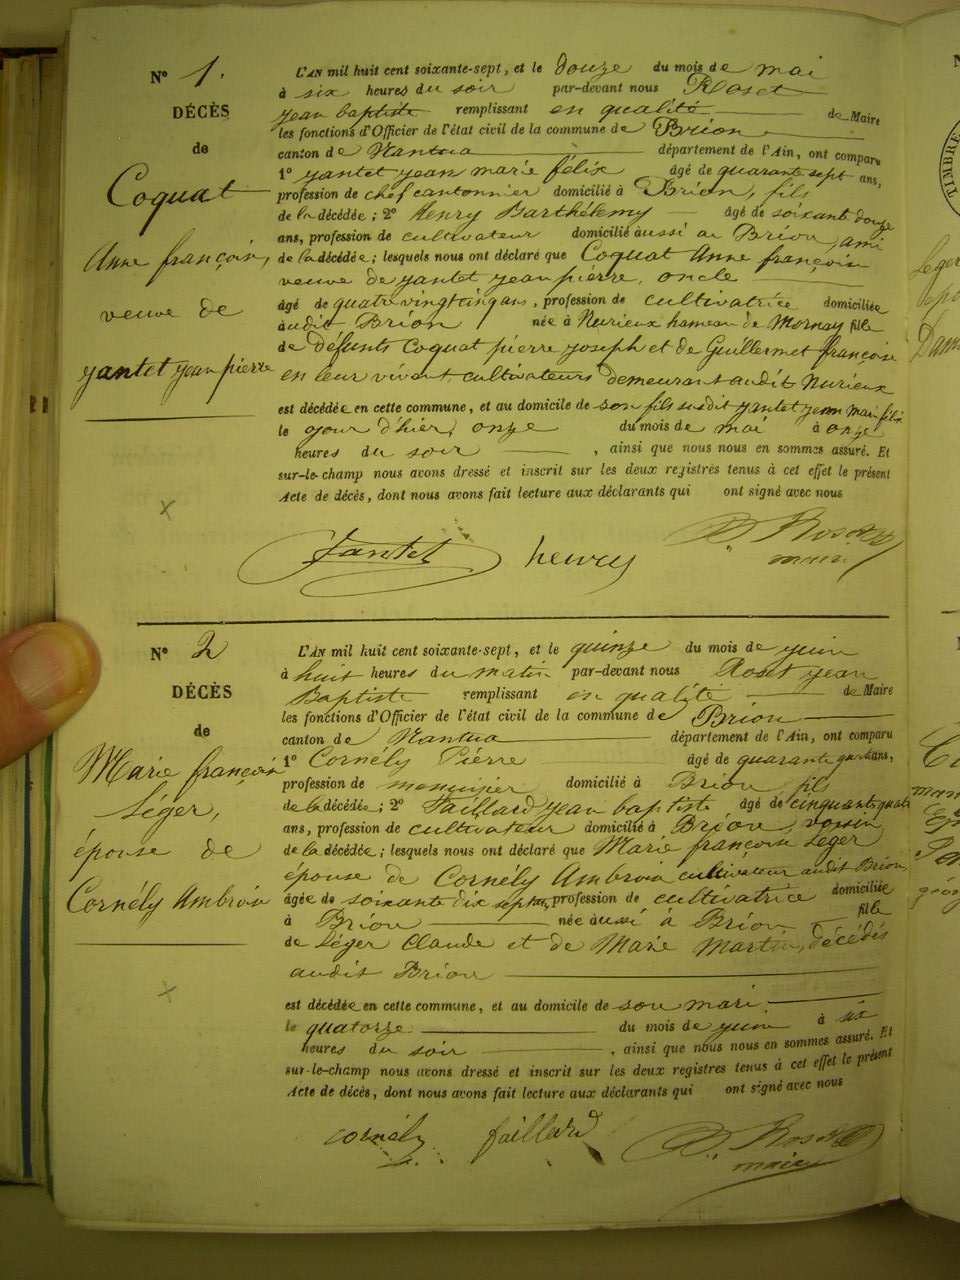 N° 1.
DÉCÈS
de
Coquat
Anne françoise,
veuve de
yantet yean pierre
L'AN mil huit cent soixante-sept, et le douze du mois de mai
à six heures du soir par-devant nous Roset
yean baptiste remplissant en qualité de Maire
les fonctions d'Officier de l'état civil de la commune de Brion
canton de Nantua département de l'Ain, ont comparu
1° yantet yean marie félix âgé de quarante sept ans,
profession de chef cantonnier domicilié à Brion, fils
de la décédée; 2° henry Barthélemy âgé de soixant douze
ans, profession de cultivateur domicilié aussi au Brion, ami
de la décédée; lesquels nous ont déclaré que Coquat Anne françoise
veuve de yantet yean pierre, oncle
âgé de quatre vingt cinq ans, profession de cultivatrice domiciliée
audit Brion née à Nurieux hameau de Mornay fille
de défunts Coquat pierre yoseph et de Guillermet françoise
en leur vivant cultivateurs demeurant audit Nurieux
est décédée en cette commune, et au domicile de son fils susdit yantet yean marie félix
le your d'hier, onze du mois de mai à onze
heures du soir, ainsi que nous nous en sommes assuré. Et
sur-le-champ nous avons dressé et inscrit sur les deux registres tenus à cet effet le présent
Acte de décès, dont nous avons fait lecture aux déclarants qui ont signé avec nous
yantet henry Roset
maire
N° 2
DÉCÈS
de
Marie françoise
Léger,
épouse de
Cornély Ambroise
L'AN mil huit cent soixante-sept, et le quinze du mois de yuin
à huit heures du matin par-devant nous Roset yean
Baptiste remplissant en qualité de Maire
les fonctions d'Officier de l'état civil de la commune de Brion
canton de Nantua département de l'Ain, ont comparu
1° Cornély Pierre âgé de quarante ans,
profession de menuisier domicilié à Brion fils
de la décédée; 2° faillard yean baptiste âgé de cinquante quatre
ans, profession de cultivateur domicilié à Brion, voisin
de la décédée; lesquels nous ont déclaré que Marie françoise Léger
épouse de Cornély Ambroise cultivateur audit Brion,
âgée de soixante dix sept ans, profession de cultivatrice domiciliée
à Brion née aussi à Brion fille
de Léger Claude et de Marie Martin, décédés
audit Brion
est décédée en cette commune, et au domicile de son mari.
le quatorze du mois de yuin à six
heures du soir, ainsi que nous nous en sommes assuré. Et
sur-le-champ nous avons dressé et inscrit sur les deux registres tenus à cet effet le présent
Acte de décès, dont nous avons fait lecture aux déclarants qui ont signé avec nous
cornély faillard Roset
maire
TIMBRE